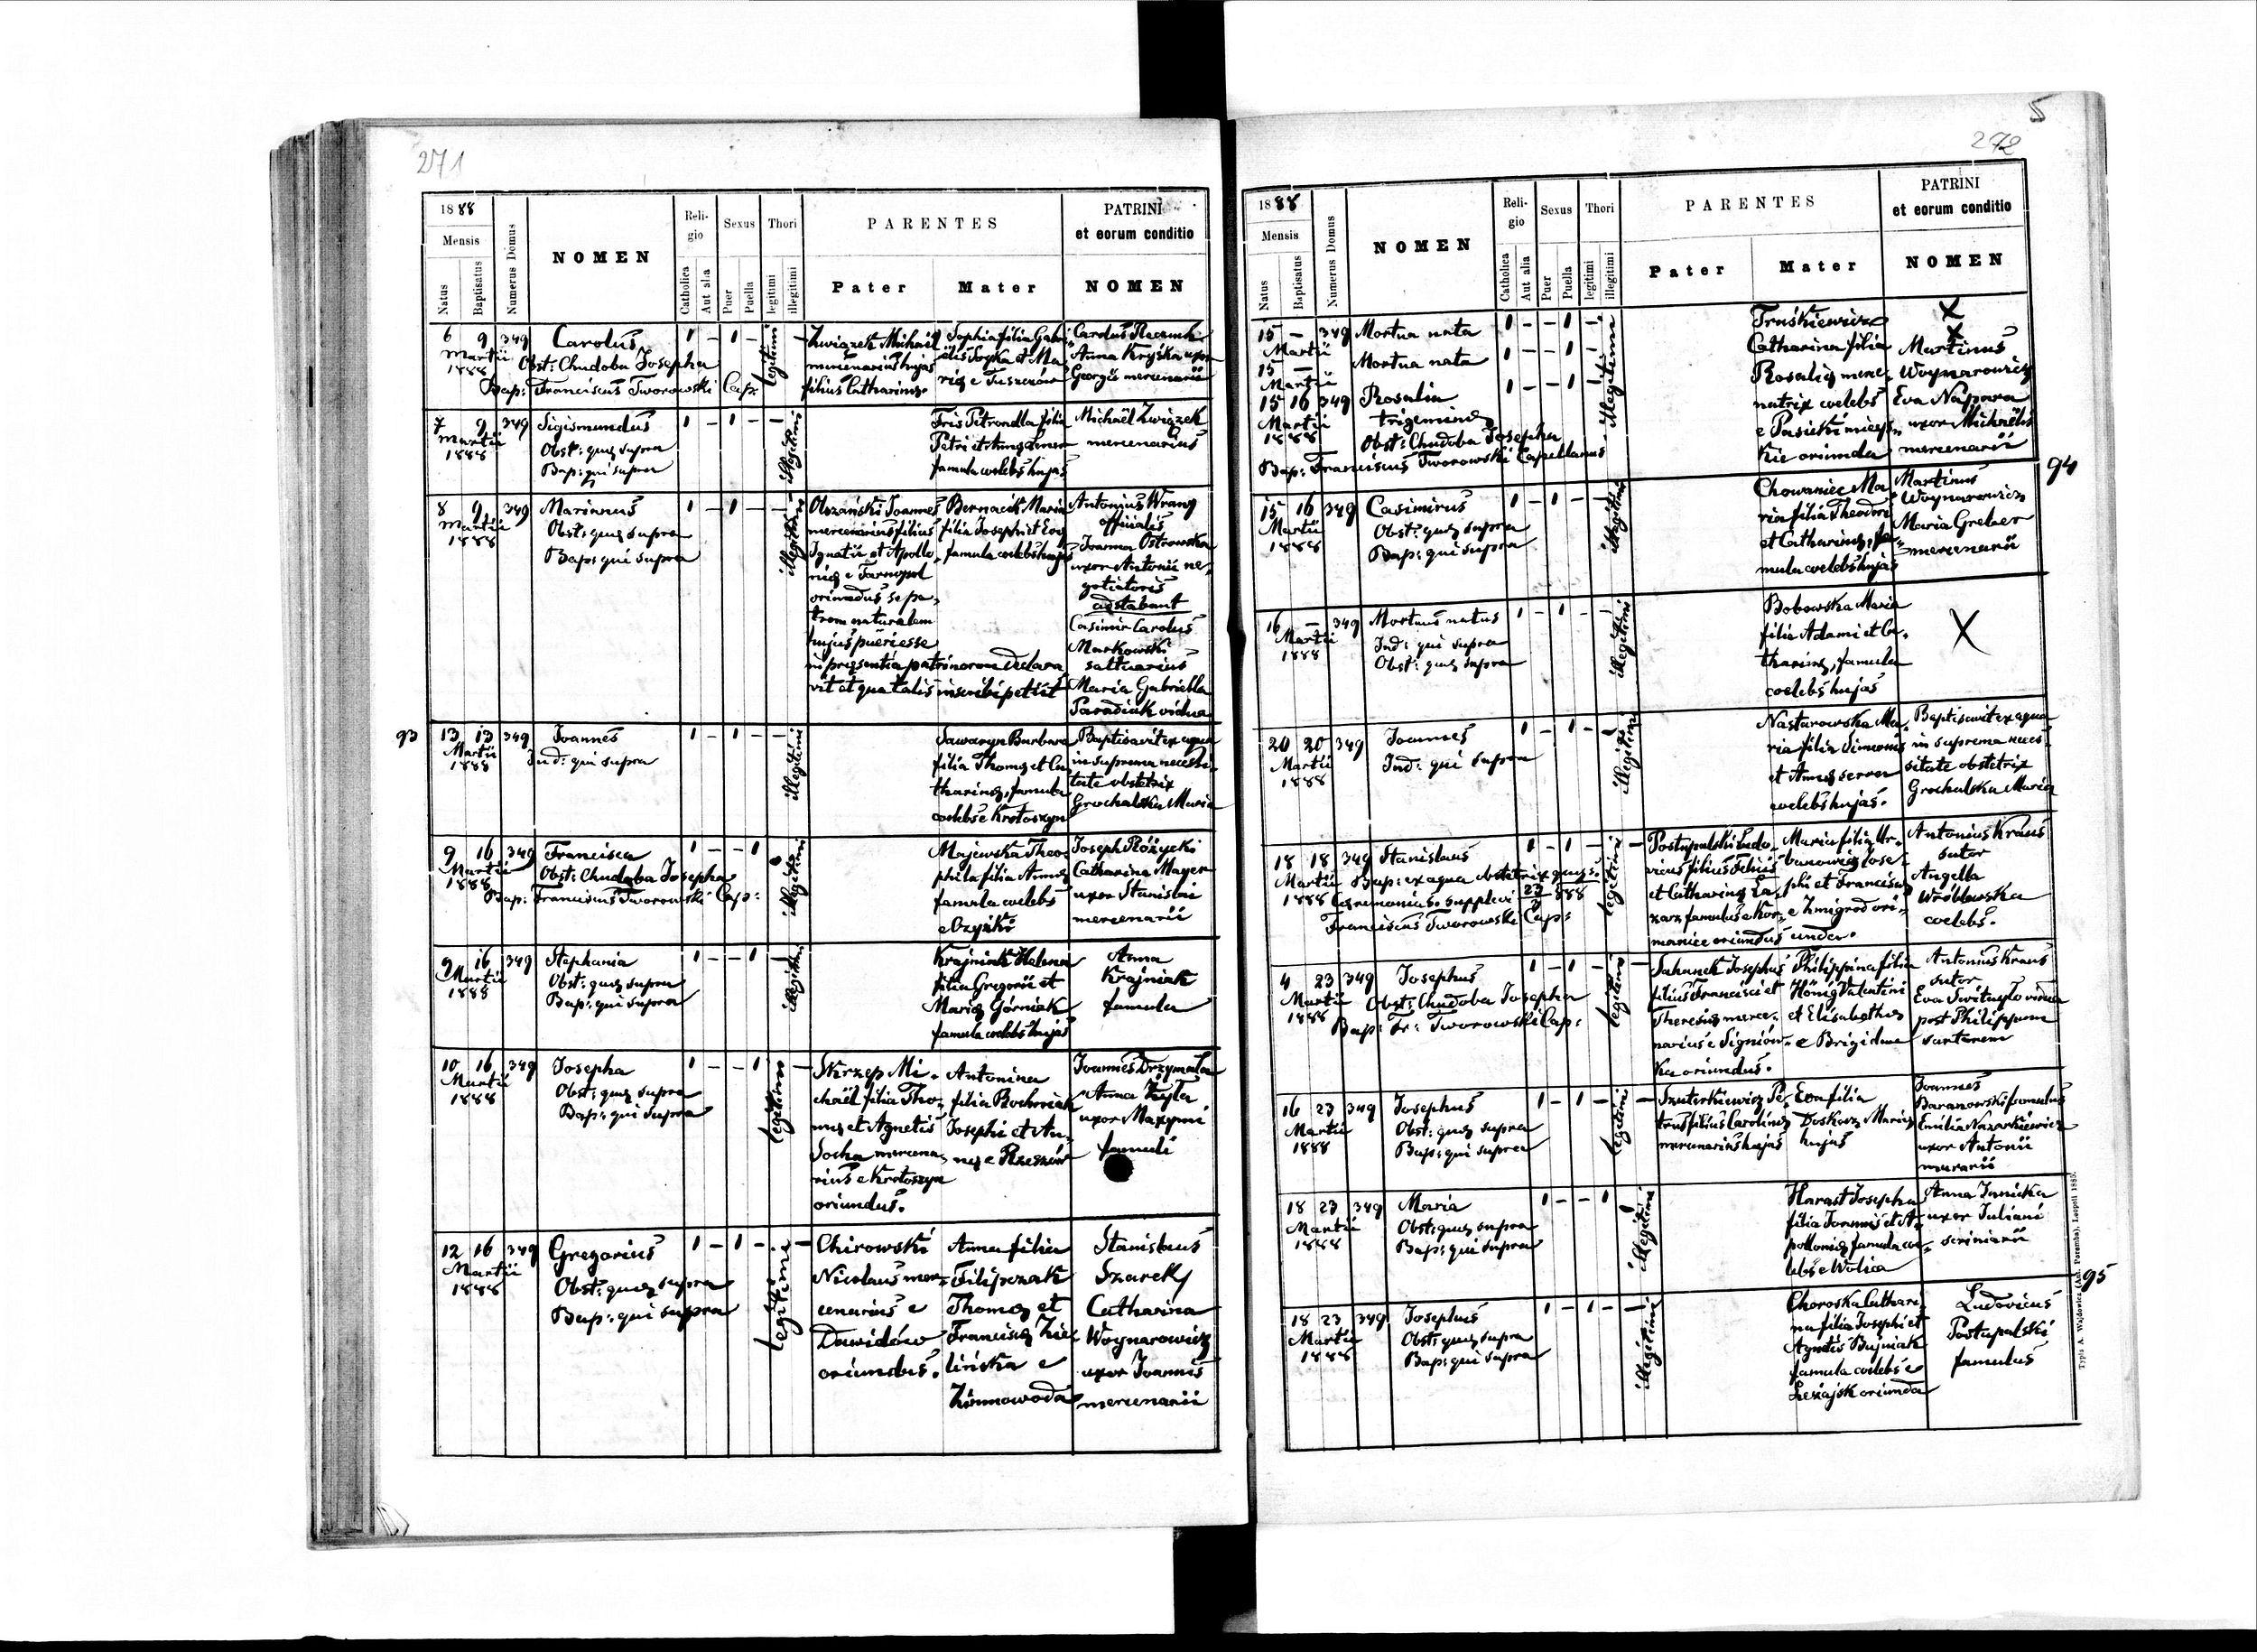 271
1888
Mensis
Natus
Baptisatus
Numerus Domus
NOMEN
Religio
Catholica
Aut alia
Sexus
Puer
Puella
Thori
legitimi
illegitimi
PARENTES
Pater
Mater
PATRINI
et eorum conditio
NOMEN
6 9 349 Carolus 1 – 1 – legitimi –
Martii
1888
Obst: Chudoba Josepha
Bap: Franciscus Tworowski Cap:
Związek Michaël
mercenarius hujas
filius Catharinæ
Sophia filia Gabri-
elis Soyka et Ma-
riæ e Tuszerów
Carolus
Anna Kryśka uxor
Georgii mercenarii
7 9 349 Sigismundus 1 – 1 – – illegitimi
Martii
1888
Obst: quæ supra
Bap: qui supra
Fris Petronella filia
Petri et
famula coelebs hujas
Michaël Związek
mercenarius
8 9 349 Marianus 1 – 1 – – illegitimi
Martii
1888
Obst: quæ supra
Bap: qui supra
Olszański Joannes
mercenarius filius
Ignatii et Apollo-
niæ e Tarnopol
oriundus se pa-
trem naturalem
hujus pueri esse
in præsentia patrinorum declara
vit et qua talis inscribi petiit
Bernacik Maria
filia Josephi et Evæ
famula coelebs hujas
Antonius Wrany
officialis
Joanna Ostrowska
uxor Antonii ne-
gotiatoris
adstabant
Casimir Carolus
Markowski
saltuarius
Maria Gabriella
Paradiak vidua
93
13 13 349 Joannes 1 – 1 – – illegitimi
Martii
1888
Ind: qui supra
Sawaryn Barbara
filia Thomæ et Ca-
tharinæ, famula
coelebs e Krotoszyn
Baptisavit ex aqua
in suprema necessi-
tate obstetrix
Grochalska Maria
9 16 349 Francisca 1 – – 1 illegitimi
Martii
1888
Obst: Chudoba Josepha
Bap: Franciscus Tworowski Cap:
Majewska Theo-
phila filia Annæ
famula coelebs
e Czyżki
Joseph Różycki
Catharina Mayer
uxor Stanislai
mercenarii
9 16 349 Stephania 1 – – 1 illegitimi
Martii
1888
Obst: quæ supra
Bap: qui supra
Krajniak Helena
filia Gregorii et
Mariæ Górniak
famula coelebs hujas
Anna
Krajniak
famula
10 16 349 Josepha 1 – – 1 legitimi –
Martii
1888
Obst: quæ supra
Bap: qui supra
Skrzep Mi-
chaël filia Tho-
mæ et Agnetis
Socha mercena-
rius e Krotoszyn
oriundus.
Antonina
filia Bochniak
Josephi et An-
næ e Rzeszów
Joannes Drzymala
Anna Zyla
uxor Maxymi
famuli
12 16 349 Gregorius 1 – 1 – legitimi –
Martii
1888
Obst: quæ supra
Bap: qui supra
Chirowski
Nicolaus mer-
cenarius e
Dawidów
oriundus.
Anna filia
Filipczak
Thomæ et
Franciscæ Zie-
lińska e
Zimnowoda
Stanislaus
Szarek
Catharina
Woynarowicz
uxor Joannis
mercenarii
5
272
1888
Mensis
Natus
Baptisatus
Numerus Domus
NOMEN
Religio
Catholica
Aut alia
Sexus
Puer
Puella
Thori
legitimi
illegitimi
PARENTES
Pater
Mater
PATRINI
et eorum conditio
NOMEN
15 – 349 Mortua nata 1 – – 1 –
Martii
15 – Mortua nata 1 – – 1 –
Martii
15 16 349 Rosalia 1 – – 1 – illegitimi
Martii
1888
trigeminæ
Obst: Chudoba Josepha
Bap: Franciscus Tworowski Capellanus
Truśkiewicz
Catharina filia
Rosaliæ merce-
natrix coelebs
e Pasieki miejs-
kie oriunda
X
X
Martinus
Woynarowicz
Eva Nápora
uxor Michaëlis
mercenarii
94
15 16 349 Casimirus 1 – 1 – – illegitimi
Martii
1888
Obst: quæ supra
Bap: qui supra
Chowaniec Ma-
ria filia Theodori
et Catharinæ, fa-
mula coelebs hujas
Martinus
Woynarowicz
Maria Greber
mercenarii
16 – 349 Mortuus natus 1 – 1 – – illegitimi
Martii
1888
Ind: qui supra
Obst: quæ supra
Bobowska Maria
filia Adami et Ca-
tharinæ, famula
coelebs hujas
X
20 20 349 Joannes 1 – 1 – illegitimi
Martii
1888
Ind: qui supra
Nastarowska Ma-
ria filia Simeonis
et Annæ serva
coelebs hujas.
Baptisavit ex aqua
in suprema neces-
sitate obstetrix
Grochalska Maria
18 18 349 Stanislaus 1 – 1 – legitimi –
Martii
1888
Bap: ex aqua obstetrix quæ s:
Ceremonias supplevi 23/3 888
Franciscus Tworowski Cap:
Postupalski Ludo-
vicus filius Felicis
et Catharinæ La-
zarz famulus e Kor-
maniec oriundus
Maria filia Ur-
banowicz Jose-
phi et Franciscæ
e Żmigród ori-
unda.
Antonius Kraus
sutor
Angella
Wróblewska
coelebs.
4 23 349 Josephus 1 – 1 – legitimi –
Martii
1888
Obst: Chudoba Josepha
Bap: Fr: Tworowski Cap:
Sahanek Josephus
filius Francisci et
Theresiæ merce-
narius e Signiów-
ka oriundus.
Philippina filia
Hönig Valentini
et Elisabethæ
e Brigidau
Antonius Kraus
sutor
Eva Świtayło vidua
post Philippum
sartorem
16 23 349 Josephus 1 – 1 – legitimi –
Martii
1888
Obst: quæ supra
Bap: qui supra
Szuterkiewicz Pe-
trus filius Carolinæ
mercenarius hujas
Eva filia
Doskocz Mariæ
hujas
Joannes
Baranowski famulus
Emilia Nazarkiewicz
uxor Antonii
murarii
18 23 349 Maria 1 – – 1 illegitimi
Martii
1888
Obst: quæ supra
Bap: qui supra
Harast Josepha
filia Joannis et A-
polloniæ famula coe-
lebs e Wolica
Anna Janicka
uxor Juliani
scriniarii
95
18 23 349 Josephus 1 – 1 – – illegitimi
Martii
1888
Obst: quæ supra
Bap: qui supra
Choroska Cathari-
na filia Josephi et
Agnetis Bujniak
famula coelebs e
Leżajsk oriunda
Ludovicus
Postupalski
famulus
Typis A. Wajdowicz (Ant. Poremba), Leopoli 1885.